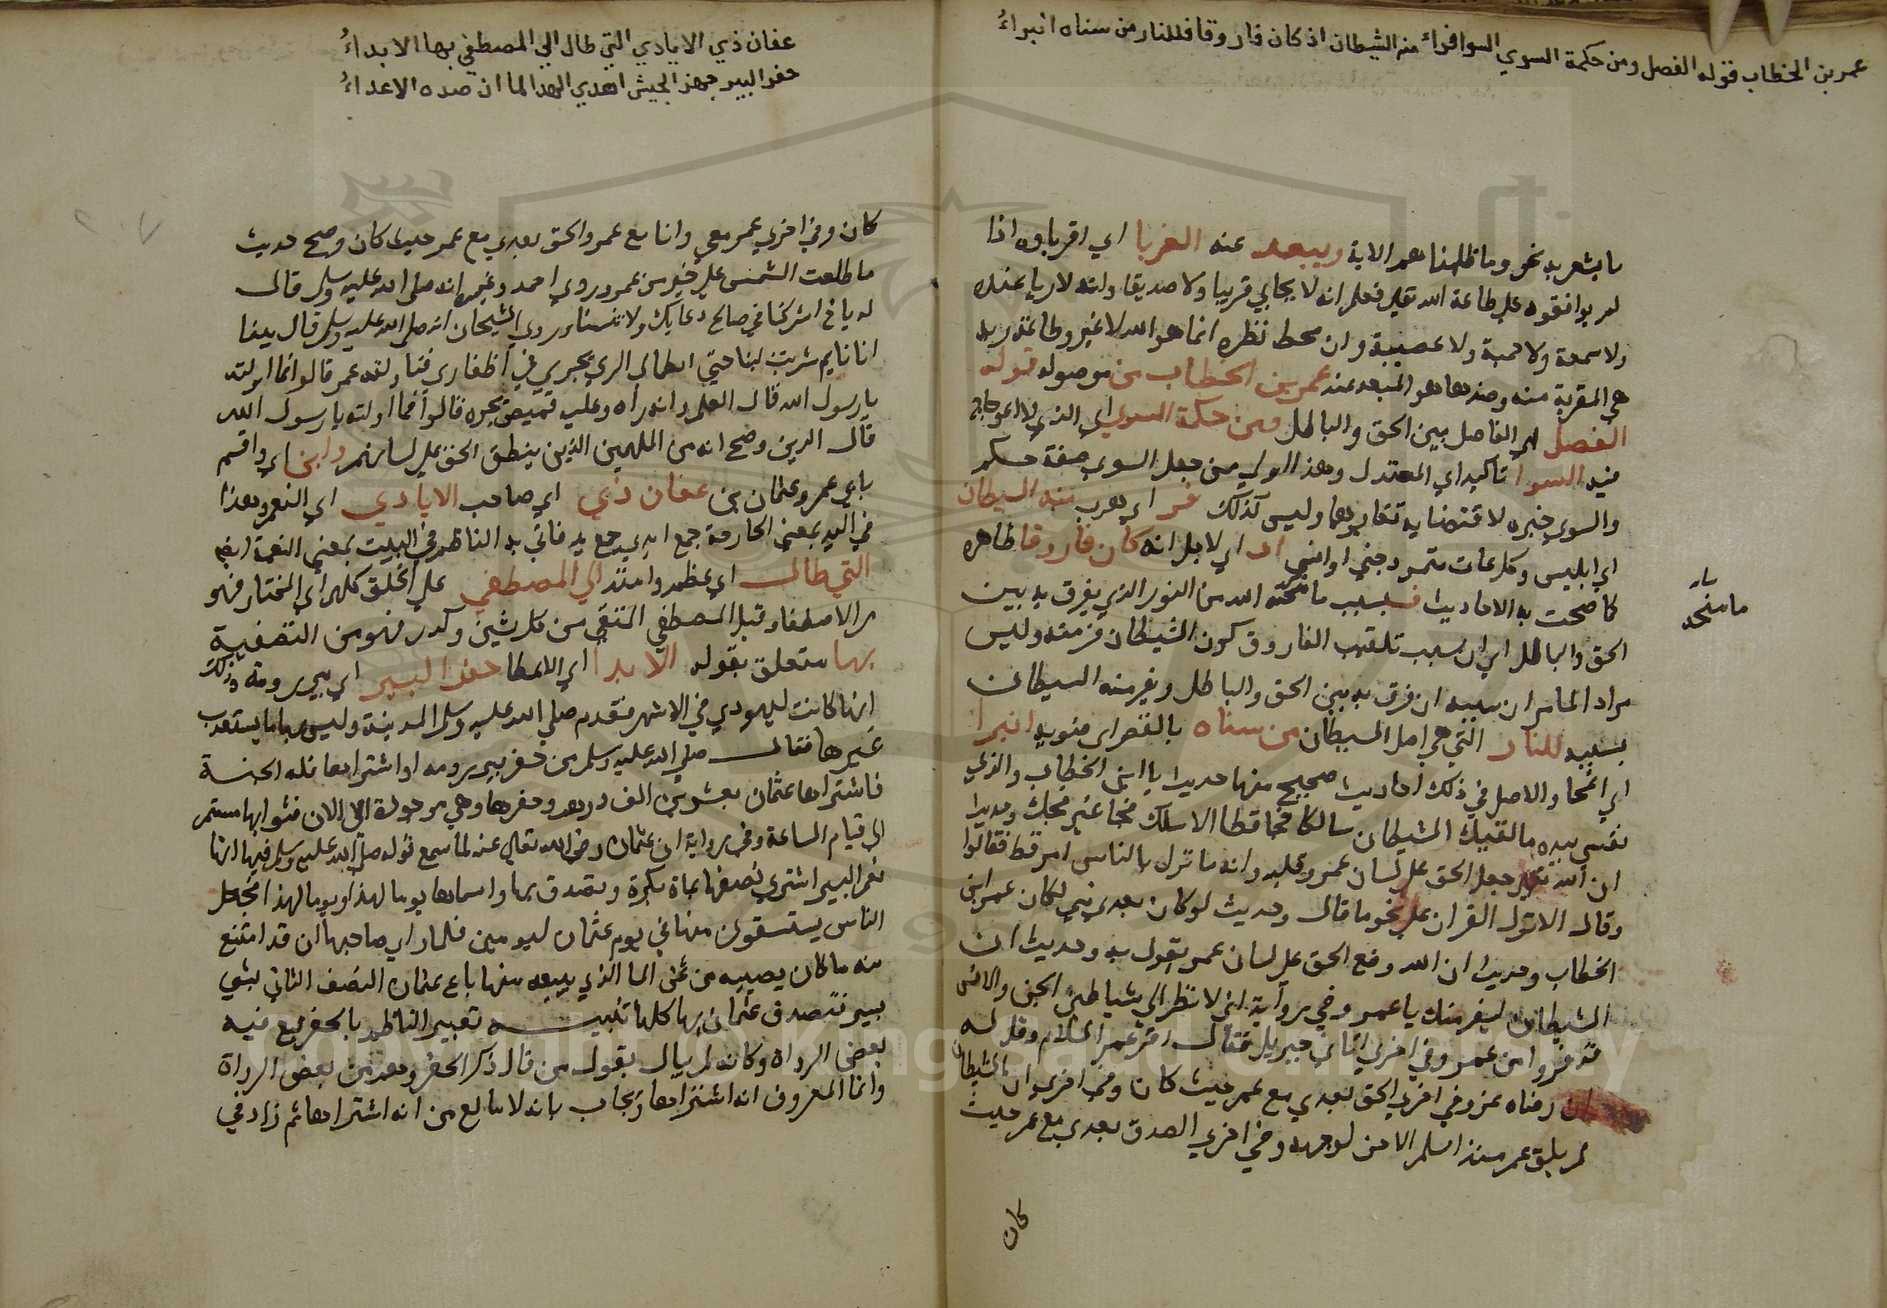 عمر بن الخطاب قوله الفصل ومن حكمه السوي السواء فر منه الشيطان اذ كان فاروقا فللنار من سناه انبراء
ما يشعر به نحو وما ظلمناهم الاية ويبعد عنه القربا اي اقرباوه اذا
لم يوافقوه على طاعة الله تعالى فعلم انه لا يحابي قريبا ولا صديقا وانه لا ريا عنده
ولا سمعة ولا حمية ولا عصبية وان محط نظره انما هو الله لا غير وطاعة ربه
هي المقربة منه وضدها هو المبعد عنه عمر بن الخطاب من موصولة قوله
الفصل اي الفاصل بين الحق والباطل ومن حكمه السوي اي الذي لا اعوجاج
فيه السوا تاكيد اي المعتدل وهذا اولى من جعل السوي صفة حكم
والسوي خبره لاقتضايه تغايرهما وليس كذلك فر اي هرب منه الشيطان
اي ابليس وكل عات متمرد جني او انسي اذ اي لاجل انه كان فاروقا ظاهره
كما صحت به الاحاديث فبسبب ما منحه الله من النور الذي يفرق به بين
الحق والباطل اي ان سبب تلقيب الفاروق كون الشيطان فر منه وليس
مراد المامر ان سببه ان فرق به بين الحق والباطل ويفر منه الشيطان
بسببه للنار التي هي اصل الشيطان من سناه بالقصر اي ضويه انبرا
اي انمحا والاصل في ذلك احاديث صحيح منها حديث يا ابن الخطاب والذي
نفسي بيده ما لقيك الشيطان سالكا فجا قط الا سلك فجا غير فجك وحديث
ان الله تعالى جعل الحق على لسان عمر وقلبه وانه ما نزل بالناس امر قط فقالوا
وقال الا نزل القران على نحو ما قال وحديث لو كان بعدي نبي لكان عمر ابن
الخطاب وحديث ان الله وضع الحق على لسان عمر يقول به وحديث ان
الشيطان ليفر منك يا عمر وفي رواية اني لا نظر الى شياطين الجن والانس
قد فروا من عمر وفي اخرى اتاني جبريل فقال اقر عمر السلام وقل له
ان رضاه عز وفي اخرى الحق بعدي مع عمر حيث كان وفي اخرى ان الشيطان
لم يلق عمر منذ اسلم الا خر لوجهه وفي اخرى الصدق بعدي مع عمر حيث
كان
ما منحه
عفان ذي الايادي التي طال الى المصطفي بها الابداءُ
حفر البير جهز الجيش اهدي الهدي لما ان صده الاعداءُ
كان وفي اخرى عمر معي وانا مع عمر والحق بعدي مع عمر حيث كان وصح حديث
ما طلعت الشمس على خير من عمر وروي احمد وغيره انه صلى الله عليه وسلم قال
له يا اخي اشركنا في صالح دعايك ولا تنسنا وروي الشيخان انه صلى الله عليه وسلم قال بينا
انا نايم شربت لبنا حتى انظر الى الري يجري في اظفاري فناولته عمر قالوا فما اولته
يا رسول الله قال العلم وانه راه وعليه قميص يجره قالوا فما اولته يا رسول الله
قال الدين وصح انه من الملهمين الذين ينطق الحق على لسانهم وابن اي واقسم
بابي عمرو عثمان بن عفان ذي اي صاحب الايادي اي النعم وهذا
في اليد بمعنى الجارحة جمع ايدي جمع يد فاتى به الناظم في البيت بمعنى النعمة ايضا
التي طال اي عظم وامتد الى المصطفي على الخلق كلهم اي المختار فهو
من الاصطفا وقيل المصطفي المنتقى من كل شين وكدر فهو من التصفية
بها متعلق بقوله الابدا اي الاعطا حفر البير اي بير رومة وذلك
انها كانت ليهودي في الاشهر فقدم صلى الله عليه وسلم المدينة وليس بها ما يستعذب
غيرها فقال صلى الله عليه وسلم من حفر بير رومه او اشتراها فله الجنة
فاشتراها عثمان بعشرين الف درهم وحفرها وهي موجودة الى الان فثوابها مستمر
الى قيام الساعة وفي رواية ان عثمان رضي الله تعالى عنه لما سمع قوله صلى الله عليه وسلم فيها انها
نعم البير اشتري نصفها بماة بكرة وتصدق بها واسماها يوما لهذا ويوما لهذا فجعل
الناس يستسقون منها في يوم عثمان ليومين فلما راى صاحبها ان قد امتنع
منه ما كان يصيبه من ثمن الما الذي يبيعه منها باع عثمان النصف الثاني بشي
يسير فتصدق عثمان بها كلها تنبيه تعبير الناظم بالحفر تبع فيه
بعض الرواة وكانه لم يبال بقول من قال ذكر الحفر وهم من بعض الرواة
وانما المعروف انه اشتراها ويجاب بانه لا مانع من انه اشتراها ثم زاد في